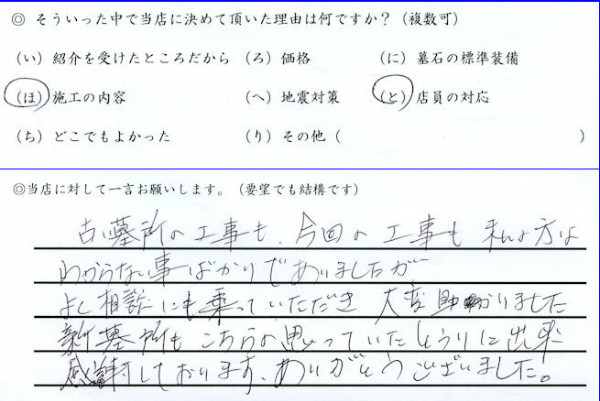 ◎ そういった中で当店に決めて頂いた理由は何ですか?(複数可)
(い) 紹介を受けたところだから (ろ) 価格 (に) 墓石の標準装備
(ほ) 施工の内容 (へ) 地震対策 (と) 店員の対応
(ち) どこでもよかった (り) その他 ( )
◎当店に対して一言お願いします。(要望でも結構です)
古い墓所の工事も、今回の工事も 私の方は
わからない事ばかりでありましたが
よし相談にも乗っていただき 大変助かりました
新墓所も こちらの思っていたとうりに出来
感謝しております、ありがとうございました。